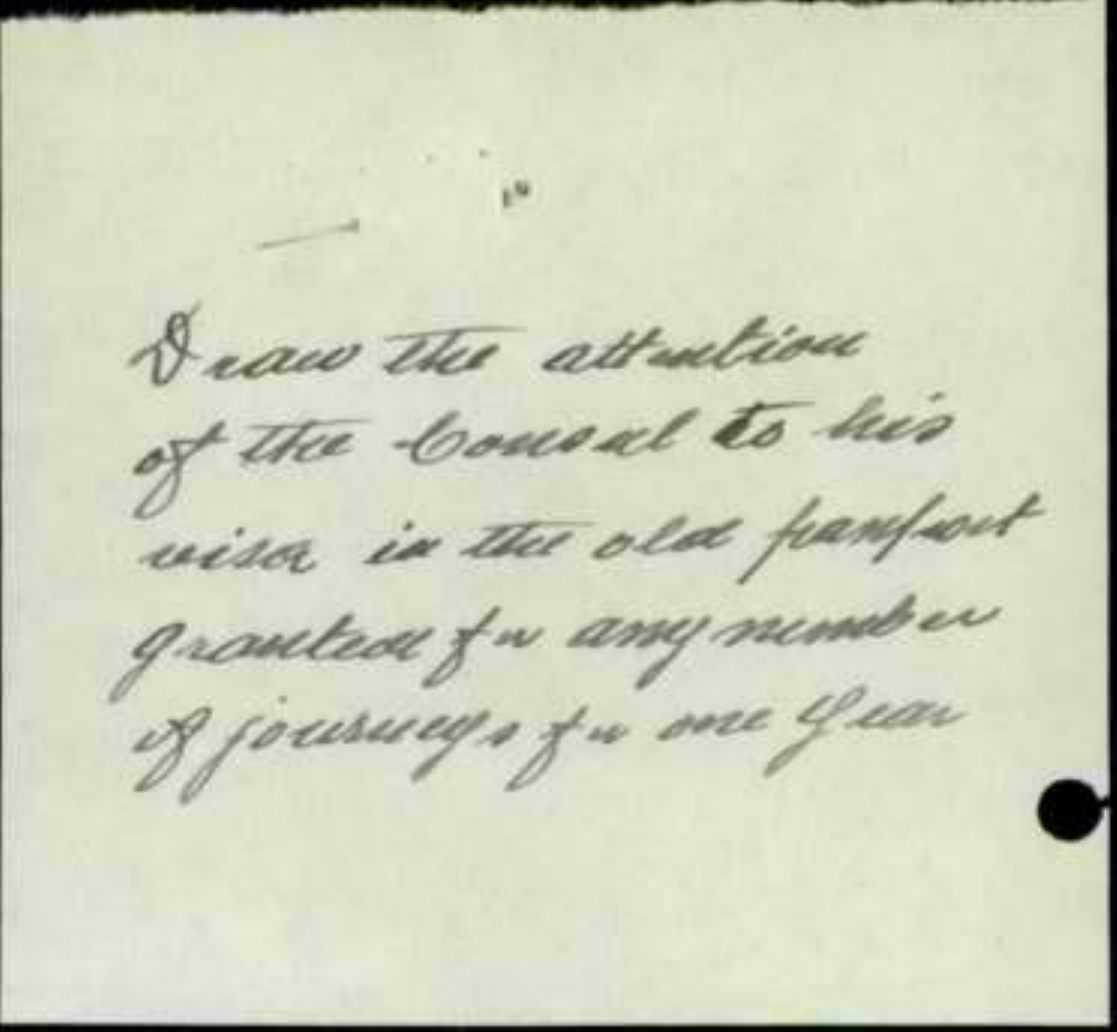 Draw the attention
of the Consul to his
visa in the old passport
granted for any number
of journeys for one year